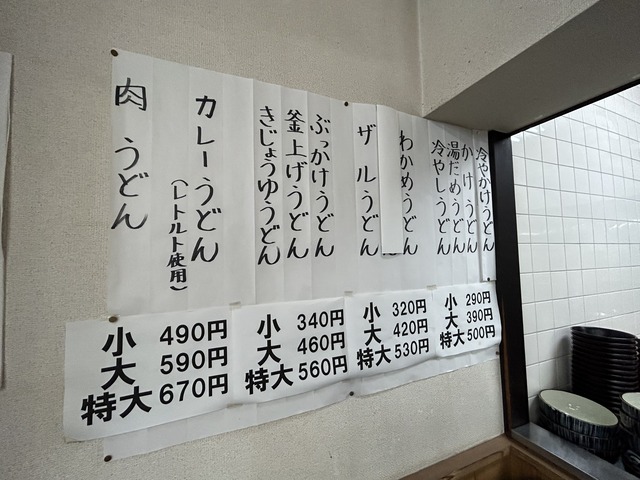 冷やかけうどん
かけうどん
湯だめうどん
冷やしうどん
小 290円
大 390円
特大 500円
わかめうどん
ザルうどん
小 320円
大 420円
特大 530円
ぶっかけうどん
釜上げうどん
きじょうゆうどん
小 340円
大 460円
特大 560円
カレーうどん
(レトルト使用)
肉うどん
小 490円
大 590円
特大 670円